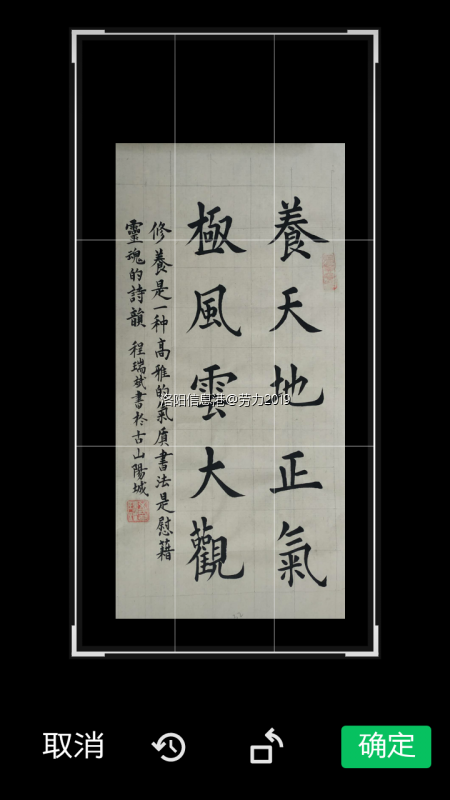 養天地正氣
極風雲大觀
修養是一种高雅的氣质書法是慰藉
靈魂的詩韻 程瑞斌書於古山陽城
洛阳信息港@劳力2019
取消
确定